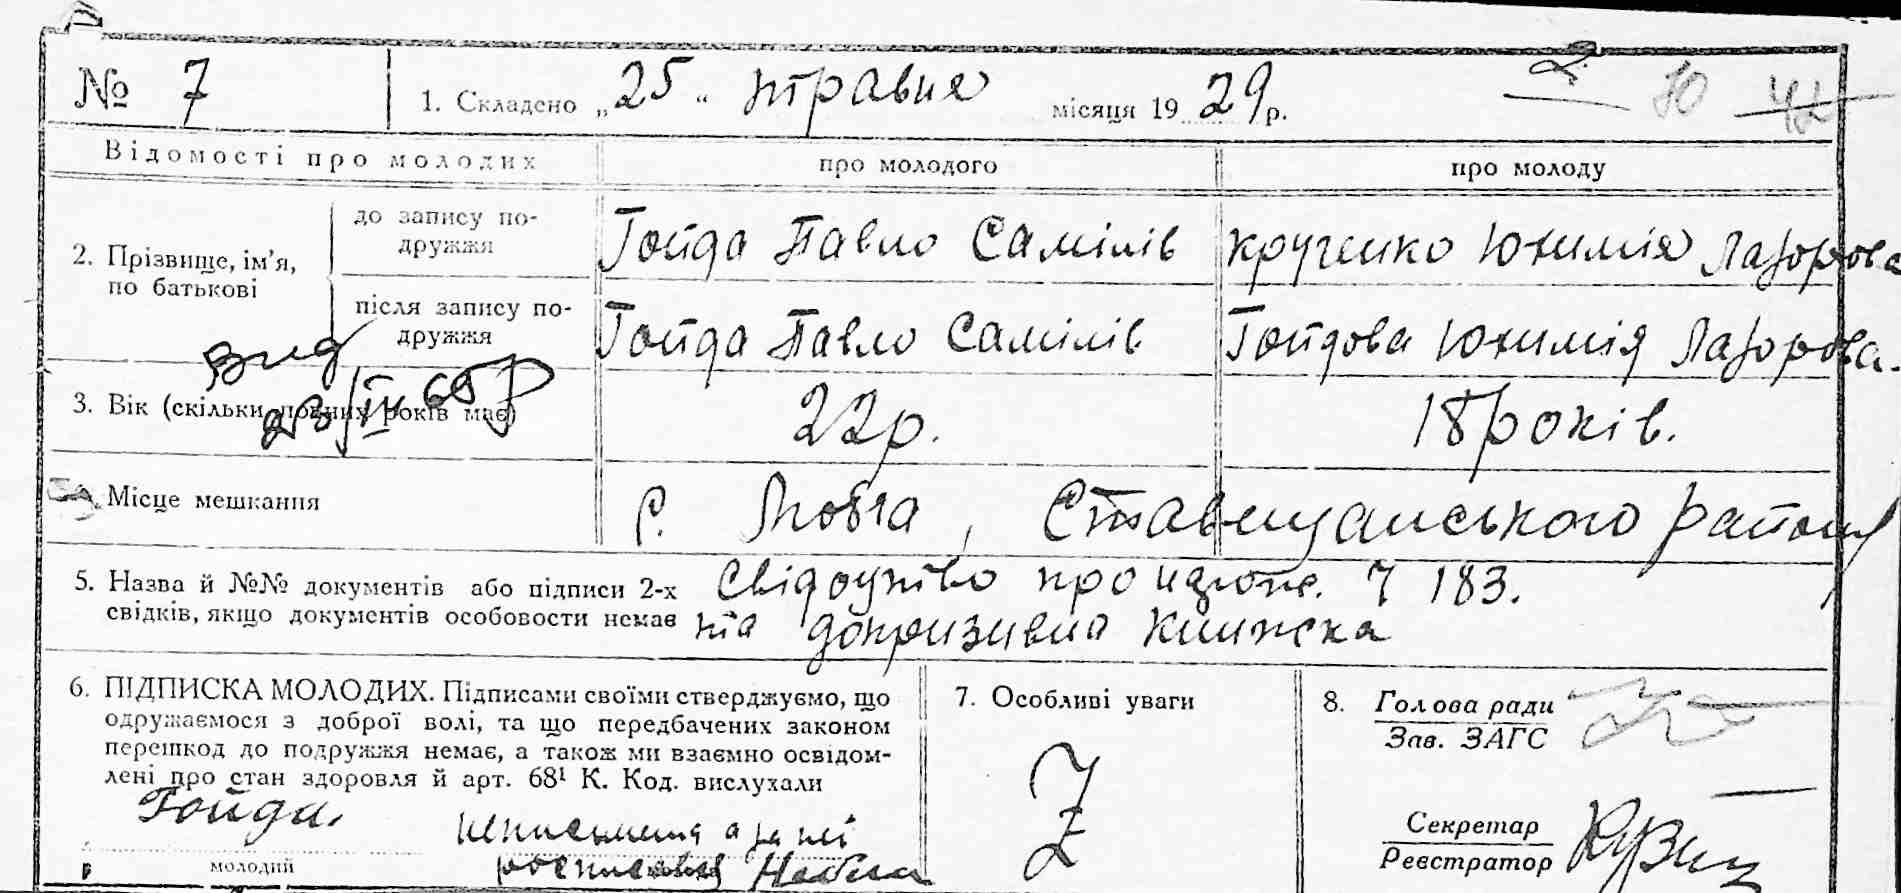 № 7
1. Складено „25“ травня місяця 1929 р.
2 10 42
Відомості про молодих
про молодого
про молоду
2. Прізвище, ім’я, по батькові
до запису по-
дружжя
Гойда Павло Самілів
Крученко Юхимія Лазорова
після запису по-
дружжя
Гойда Павло Самілів
Гойдова Юхимія Лазорова.
вид
23/IV 65 р
3. Вік (скільки повних років має)
22 р.
18 років.
Місце мешкання
с. Любча, Ставищанського району
5. Назва й №№ документів або підписи 2-х
свідків, якщо документів особовости немає
Свідоцтво про 7 183.
та допризивна книжка
6. ПІДПИСКА МОЛОДИХ. Підписами своїми стверджуємо, що
одружаємося з доброї волі, та що передбачених законом
перешкод до подружжя немає, а також ми взаємно освідом-
лені про стан здоровля й арт. 68¹ К. Код. вислухали
Гойда.
молодий
неписьменна а за неї
росписався
7. Особливі уваги
8. Голова ради
Зав. ЗАГС
Секретар
Реєстратор